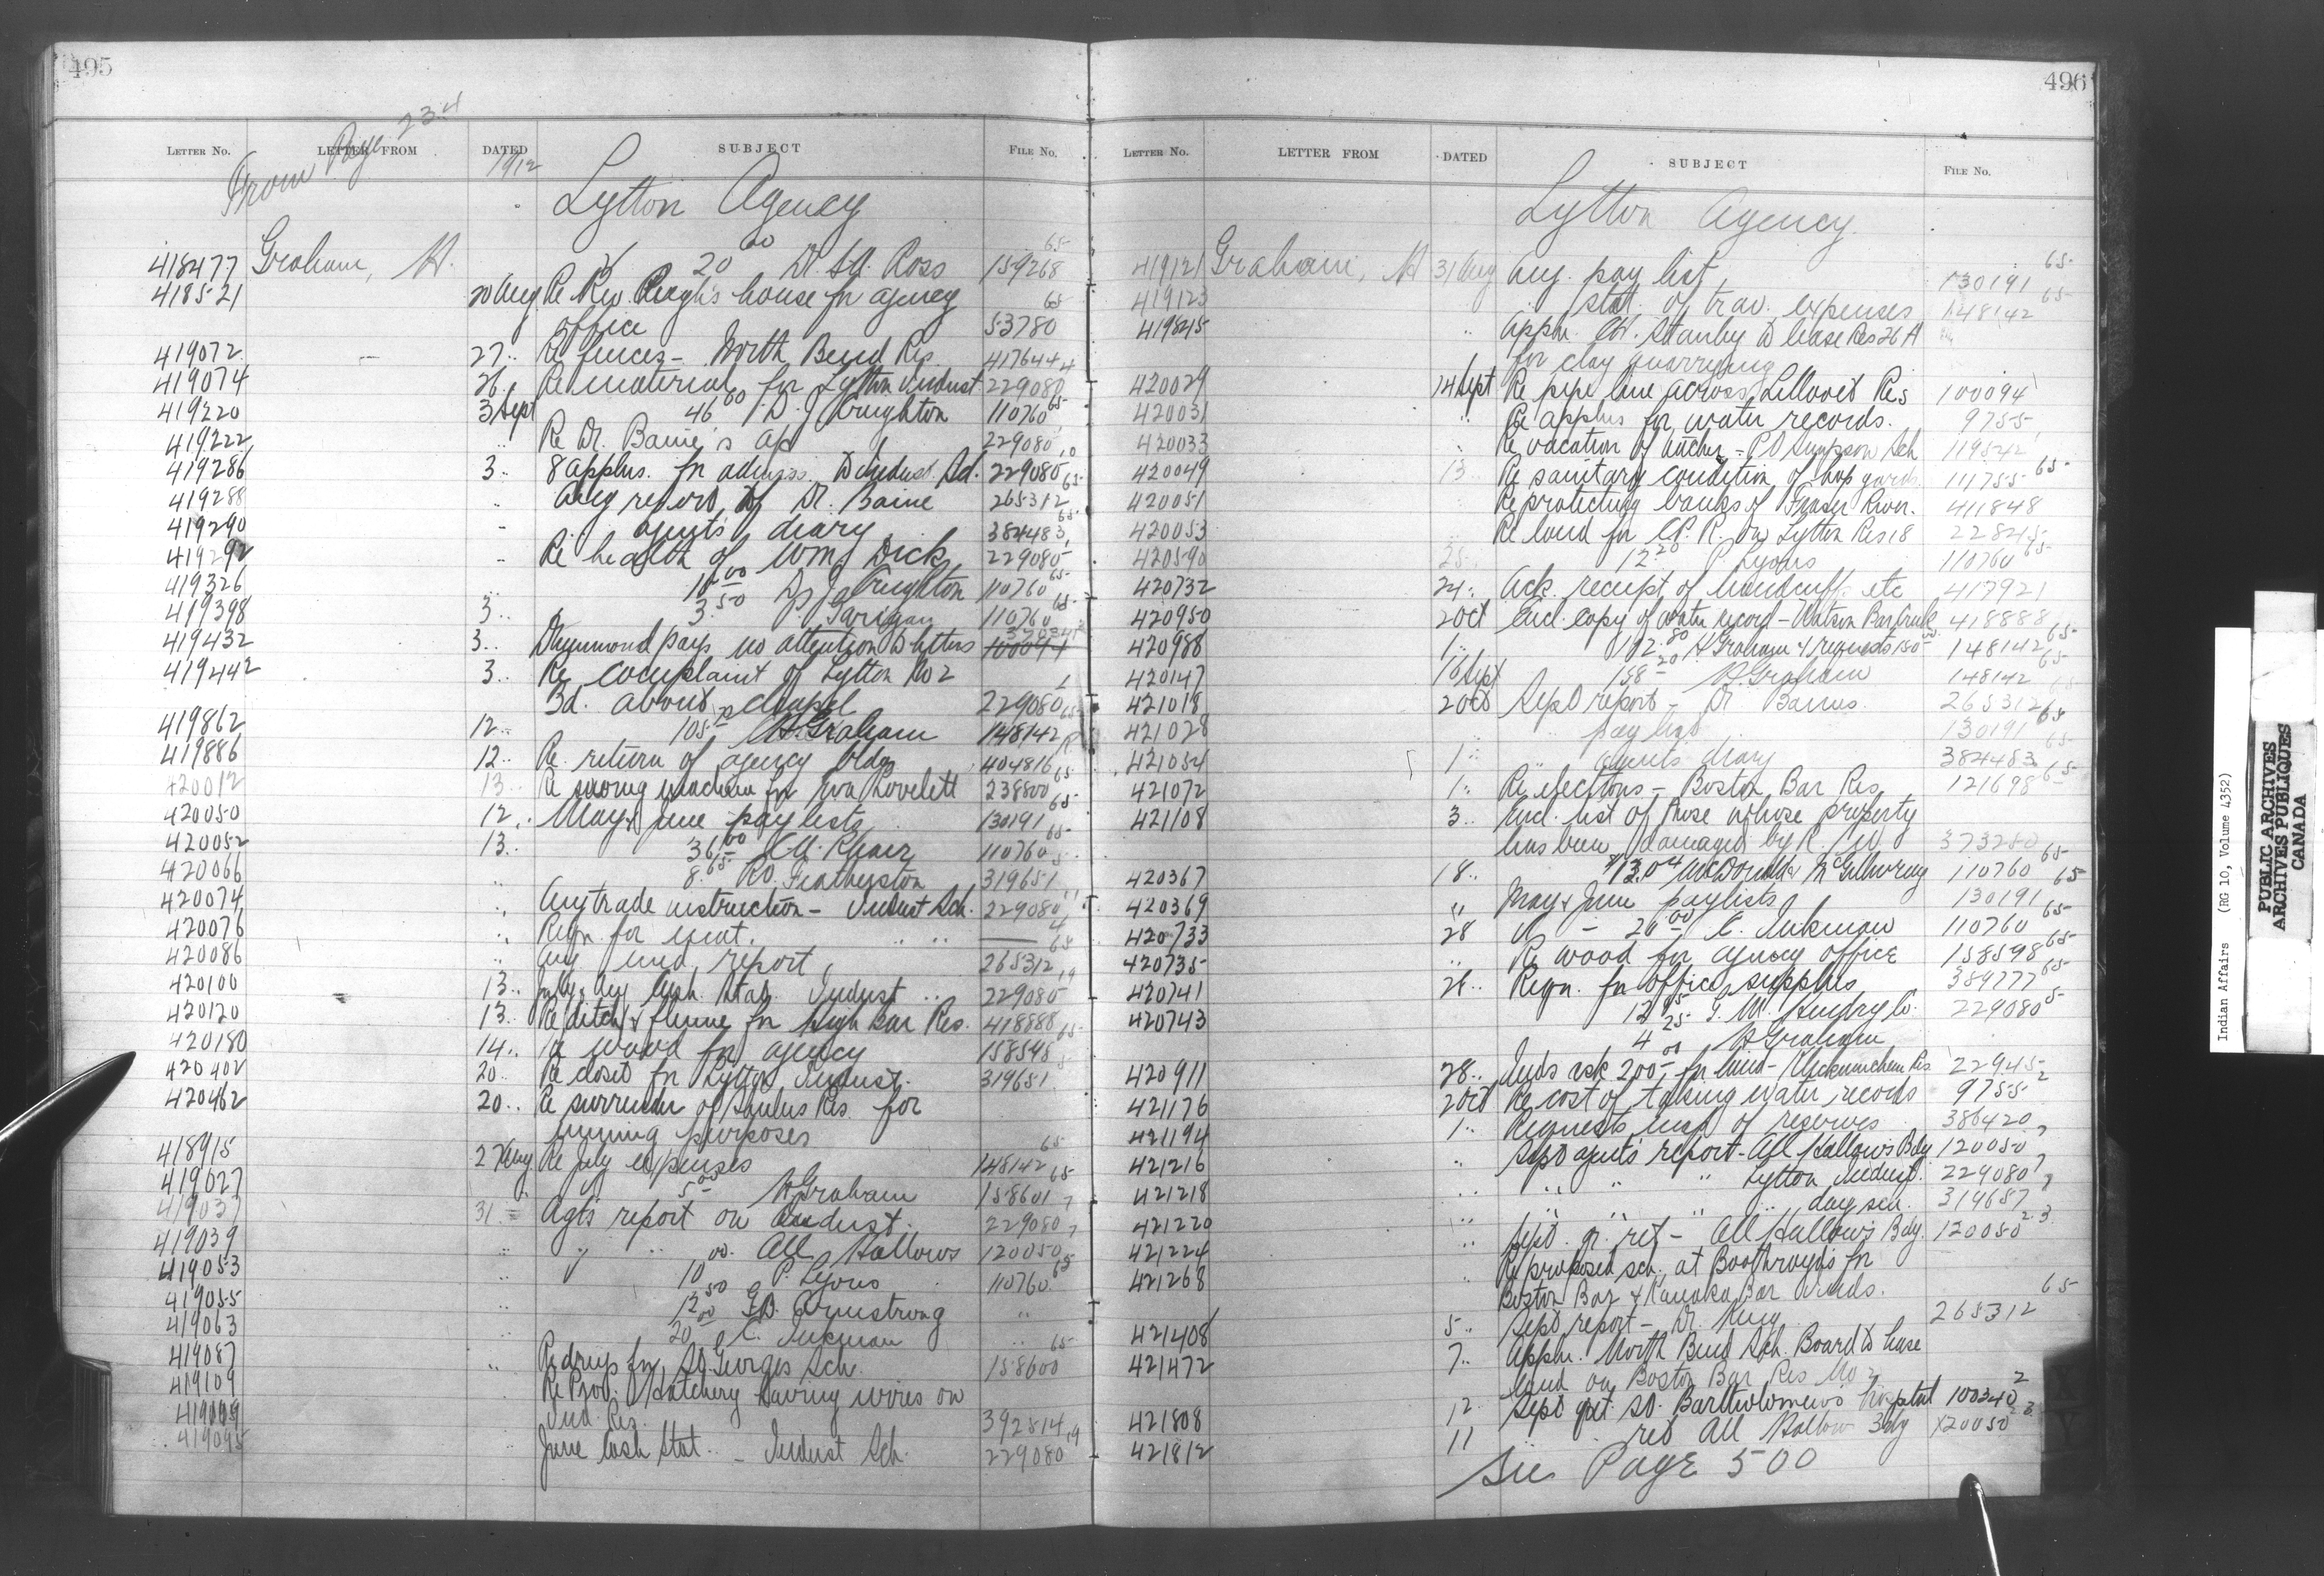 495
From Page 234
LETTER No. LETTER FROM DATED SUBJECT FILE No.
1912
Lytton Agency
418477 Graham, H. 20 00 Dr. Ross 159268 65
418521 20 Aug Re Rev. house for agency 65
office 53780
419072 27 " Re fences - North Bend Res. 417644
419074 26 " Re material for Lytton Indust 229080 4
419220 3 Sept 46 00 D. J. Creighton 110760 65
419222 " Re Dr. Baine's ap 229080
419286 3 " 8 applns. for admiss. to indust. Sch. 229080 10
419288 " Aug report of Dr. Baine 265312 65
419290 " " agent's diary 384483 65
419292 " Re health of Wm Dick 229080
419326 10 00 D. J. Creighton 110760 65
419398 3 " 3.50 P. Garigan 110760 65
419432 3 " Drummond pays no attention to letters 100094
419442 3 " Re complaint of Lytton No 2
Bd. about chapel 229080 1
419862 12 " 105 H. Graham 148142 65
419886 12 " Re return of agency bldg 404816
420012 13 " Re sewing machine for Lovelett 238800 65
420050 12 " May & June paylists 130191 65
420052 13 " 36 00 110760 65
420066 " 8.65 319651 5
420074 " Aug trade instruction - Indust Sch. 229080 11
420076 " Reqn. for meat. " " — 4
420086 " Aug med. report 265312 65
420100 13 " July & Aug Cash. Stat. Indust " 229080 19
420120 13 " Re ditch & flume for High Bar Res. 418888
420180 14 " Re wood for agency 158598 65
420402 20 " Re closet for Lytton Indust. 319651 5
420462 20 " Re surrender of Res. for
mining purposes
418915 27 Aug Re July expenses 148142 65
419027 5 00 H Graham 158601 65
419037 31 " Agts report on indust. 229080 7
419039 " " " " All Hallows 120050 7
419053 " 10 00 P. Lyons 110760 65
419055 " 12 50 G.B. Armstrong "
419063 " 20 00 C. Inkman "
419087 " Re drugs for St. Georges Sch. 158600 65
419109 Re Prov. Hatchery having wires on
Ind. Res. 392814
419095 " June Cash Stat. - Indust Sch. 229080 19
496
LETTER No. LETTER FROM DATED SUBJECT FILE No.
Lytton Agency.
419121 Graham, H 31 Aug Aug. pay list, 130191 65
419123 " " stat. of trav. expenses 148142 65
419845 " Appln. W. Stanley to lease Res 26 A
for clay quarrying
420029 14 Sept Re pipe line across Lillooet Res 100094
420031 " Re applns for water records. 9755
420033 " Re vacation of teacher - Pt Simpson Sch 119542
420049 13 " Re sanitary condition of hop yards 111755 65
420051 Re protecting banks of Fraser River. 411848
420053 " Re land for C.P.R. on Lytton Res 18 22845
420590 25 " 12.20 P. Lyons 110760 65
420732 24 " Ack. receipt of handcuffs etc 417921
420950 2 Oct Encl. copy of water record - Watson Bar Creek 418888
420988 1 " 192.80 H Graham & requests 150 00 148142 65
420147 16 Sept 158 20 H. Graham 148142 65
421018 2 Oct Sept report - Dr Barrus. 265312 65
421028 " " pay list 130191 65
421054 1 " " agents diary 384483 65
421072 1 " Re elections - Boston Bar Res 121698 65
421108 3 " Encl. list of those whose property
has been damaged by R. 373280
420367 18 " $13.04 McDonald & McGillivray 110760 65
420369 " May & June paylists 130191 65
420733 28 " - 20 00 C. Inkman 110760 65
420735 " Re wood for agency office 158598 65
420741 26 " Reqn. for office supplies 389777 65
420743 12 95 G. M. Hendry Co. 229080 5
4 25 H Graham
420911 28 " Inds ask 200 00 for land - Klickumcheen Res 22945
421176 2 Oct Re cost of taking water records 9755 2
421194 1 " Requests map of reserves 386420
421216 " Sept agents report - All Hallows Bdg 120050 7
421218 " " " " Lytton Indust. 229080 7
421220 " " " " day sch. 319687 7
421224 " Sept. qr. ret - All Hallows Bdg. 120050 2.3
421268 " Re proposed sch. at Boothroyds for
Boston Bar & Kanaka Bar Inds.
421408 5 " Sept report - Dr. King 265312 65
421472 7 " Appln. North Bend Sch. Board to lease
land on Boston Bar Res No 2
421808 12 Sept qr ret. St. Bartholomew's hospital 100340 2
421812 11 " " ret All Hallow Bdg 120050 2.3
See Page 500
Indian Affairs (RG 10, Volume 4352)
PUBLIC ARCHIVES
ARCHIVES PUBLIQUES
CANADA